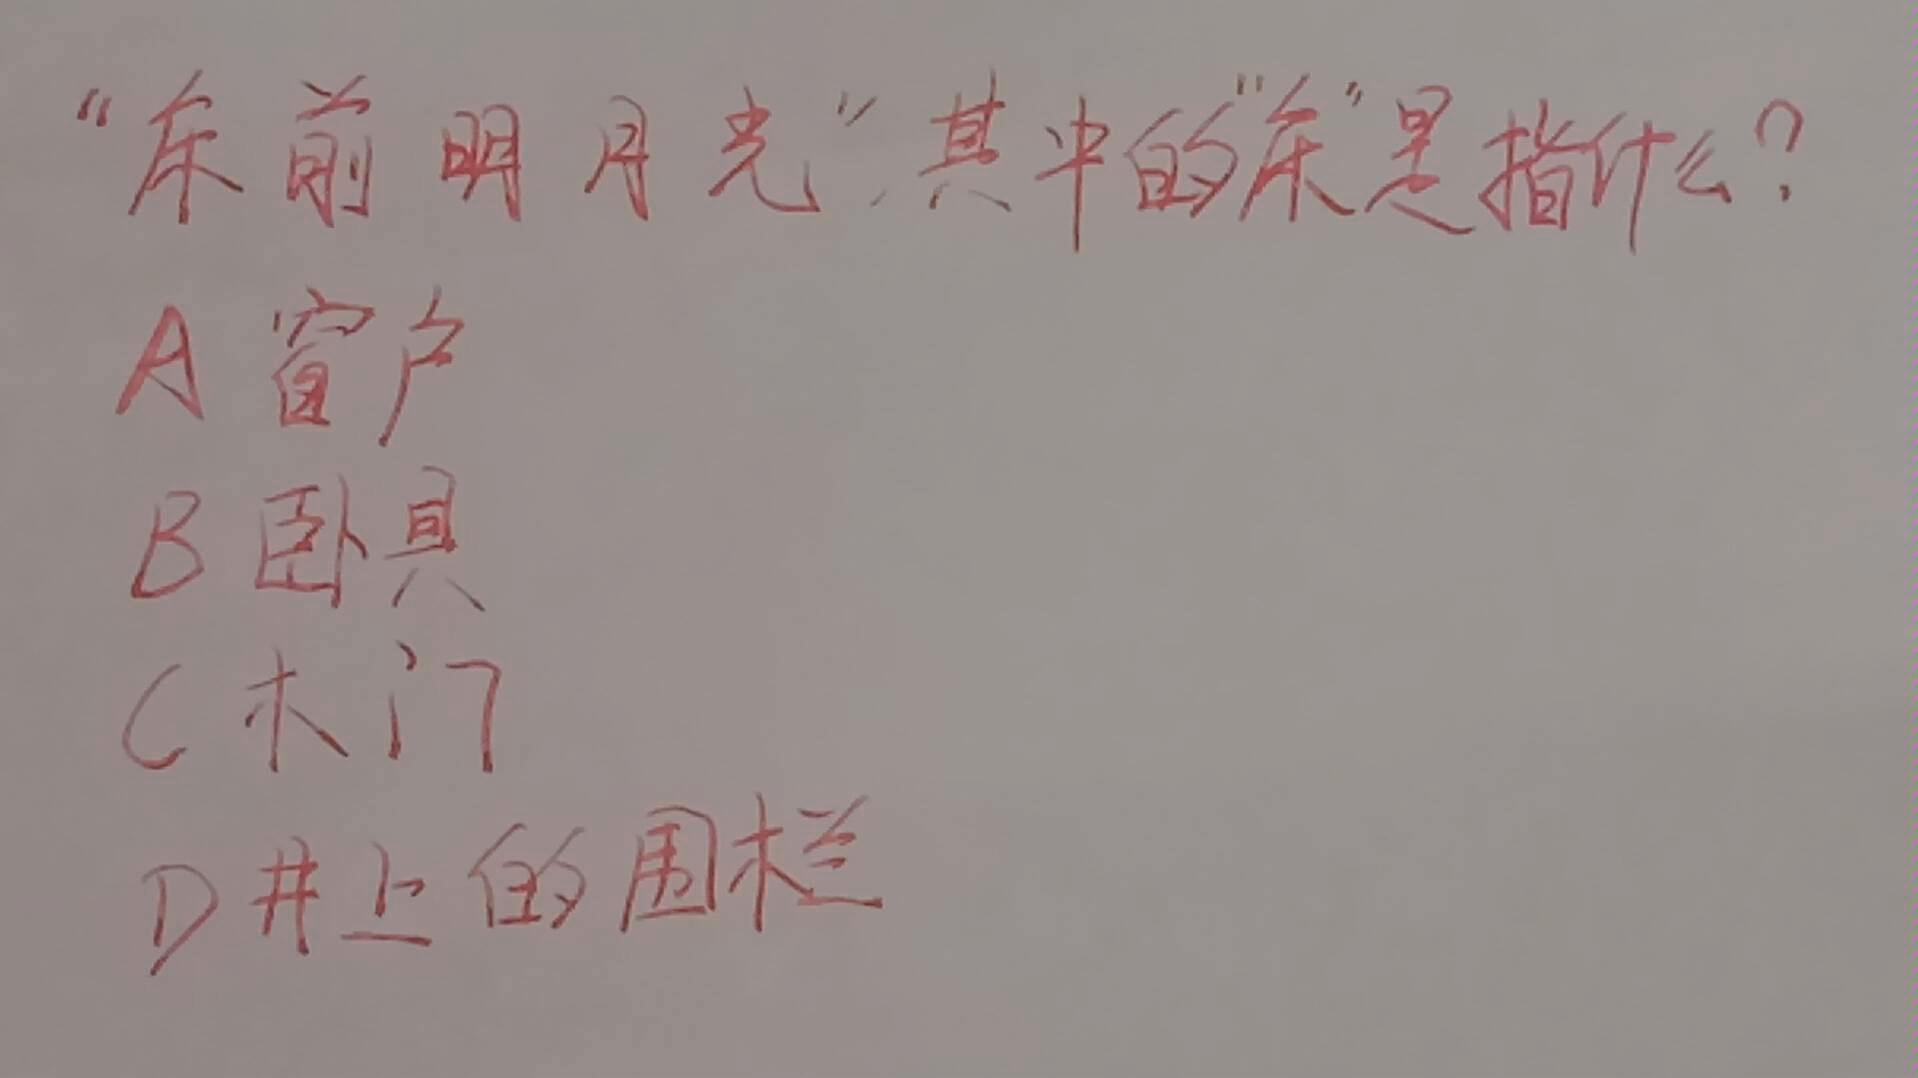 “床前明月光”,其中的“床”是指什么?
A 窗户
B 卧具
C 木门
D 井上的围栏